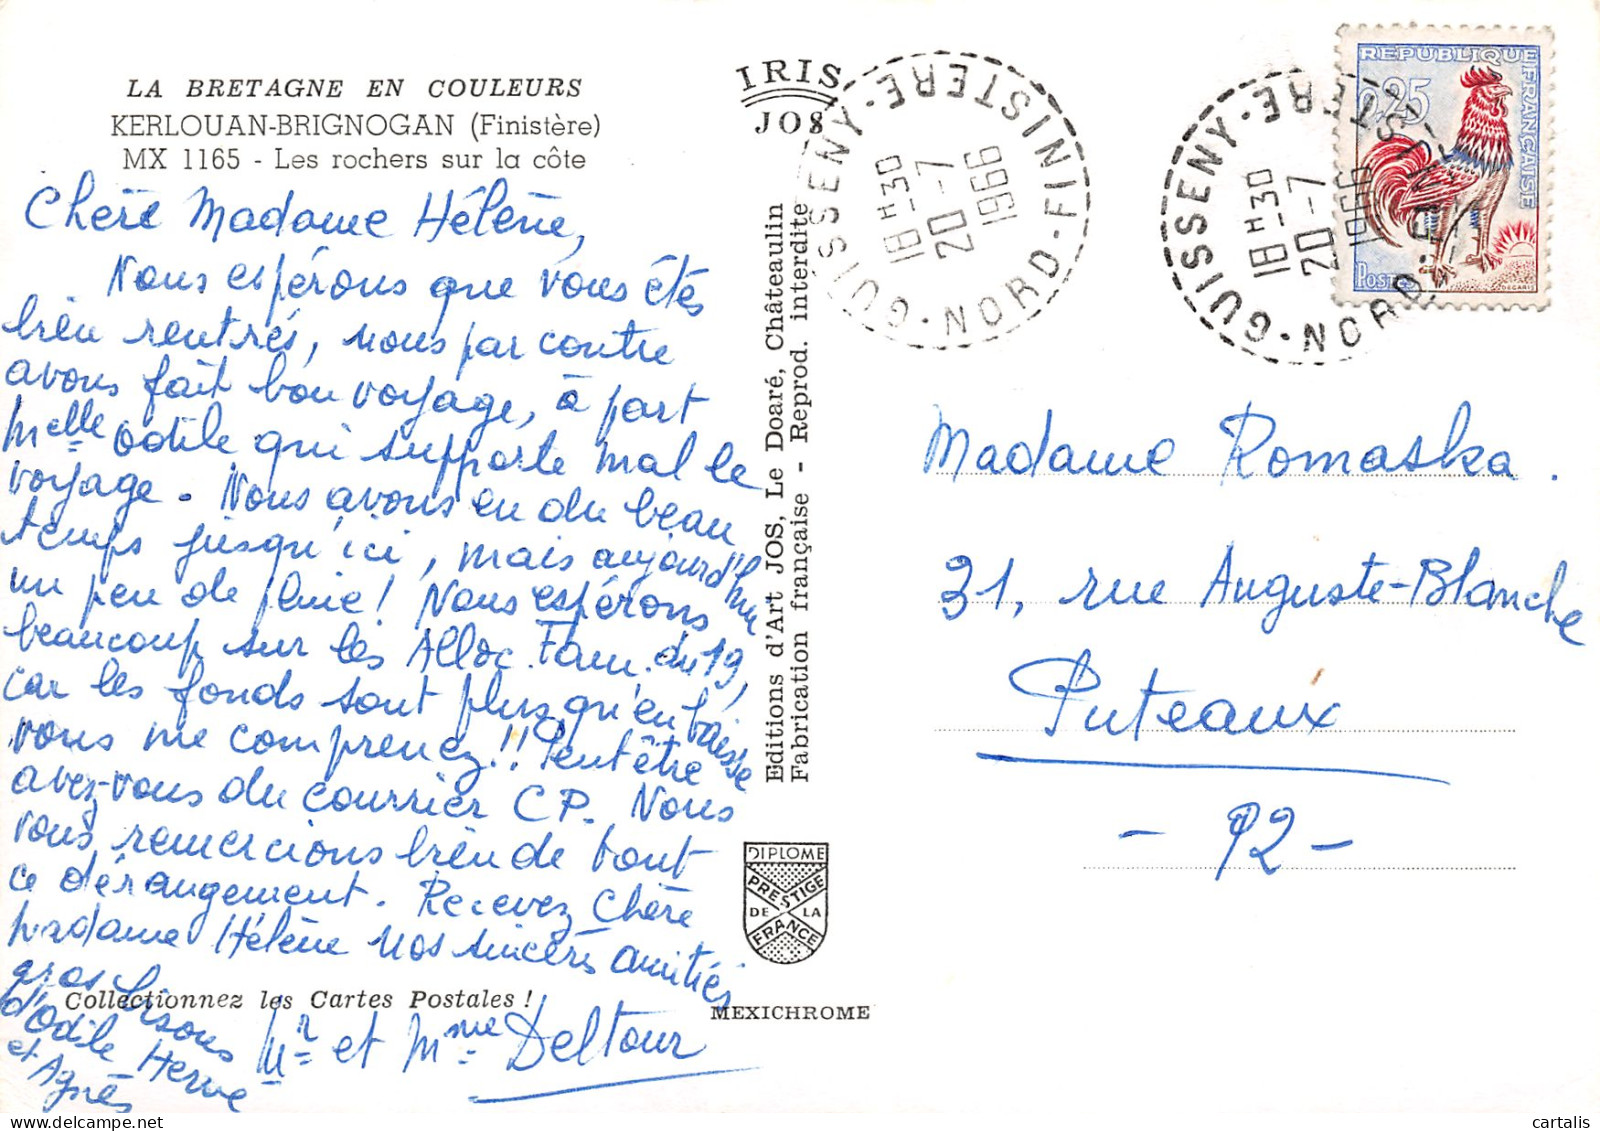 LA BRETAGNE EN COULEURS
KERLOUAN-BRIGNOGAN (Finistère)
MX 1165 - Les rochers sur la côte
Chère Madame Hélène,
Nous espérons que vous êtes
bien rentrés, nous par contre
avons fait bon voyage, à part
Melle Odile qui supporte mal le
voyage. Nous avons eu du beau
temps jusqu'ici, mais aujourd'hui
un peu de pluie! Nous espérons
beaucoup sur les Alloc. Fam. du 19,
car les fonds sont plus qu'en baisse
vous me comprenez!! Peut être
avez-vous du courrier CP. Nous
vous remercions bien de tout
ce dérangement. Recevez Chère
Madame Hélène nos sincères amitiés
gros bisous
d'Odile Hervé
et Agnès
Mr et Mme Deltour
Collectionnez les Cartes Postales !
IRIS
JOS
Editions d'Art JOS, Le Doaré, Châteaulin
Fabrication française - Reprod. interdite
DIPLOME
PRESTIGE
DE LA
FRANCE
MEXICHROME
GUISSENY · NORD-FINISTERE
18H-30
20-7
1966
GUISSENY · NORD-FINISTERE
18H-30
20-7
1966
REPUBLIQUE FRANÇAISE
0,25
POSTES
DECARIS
Madame Romaska.
31, rue Auguste-Blanche
Puteaux
- 92 -
cartalis